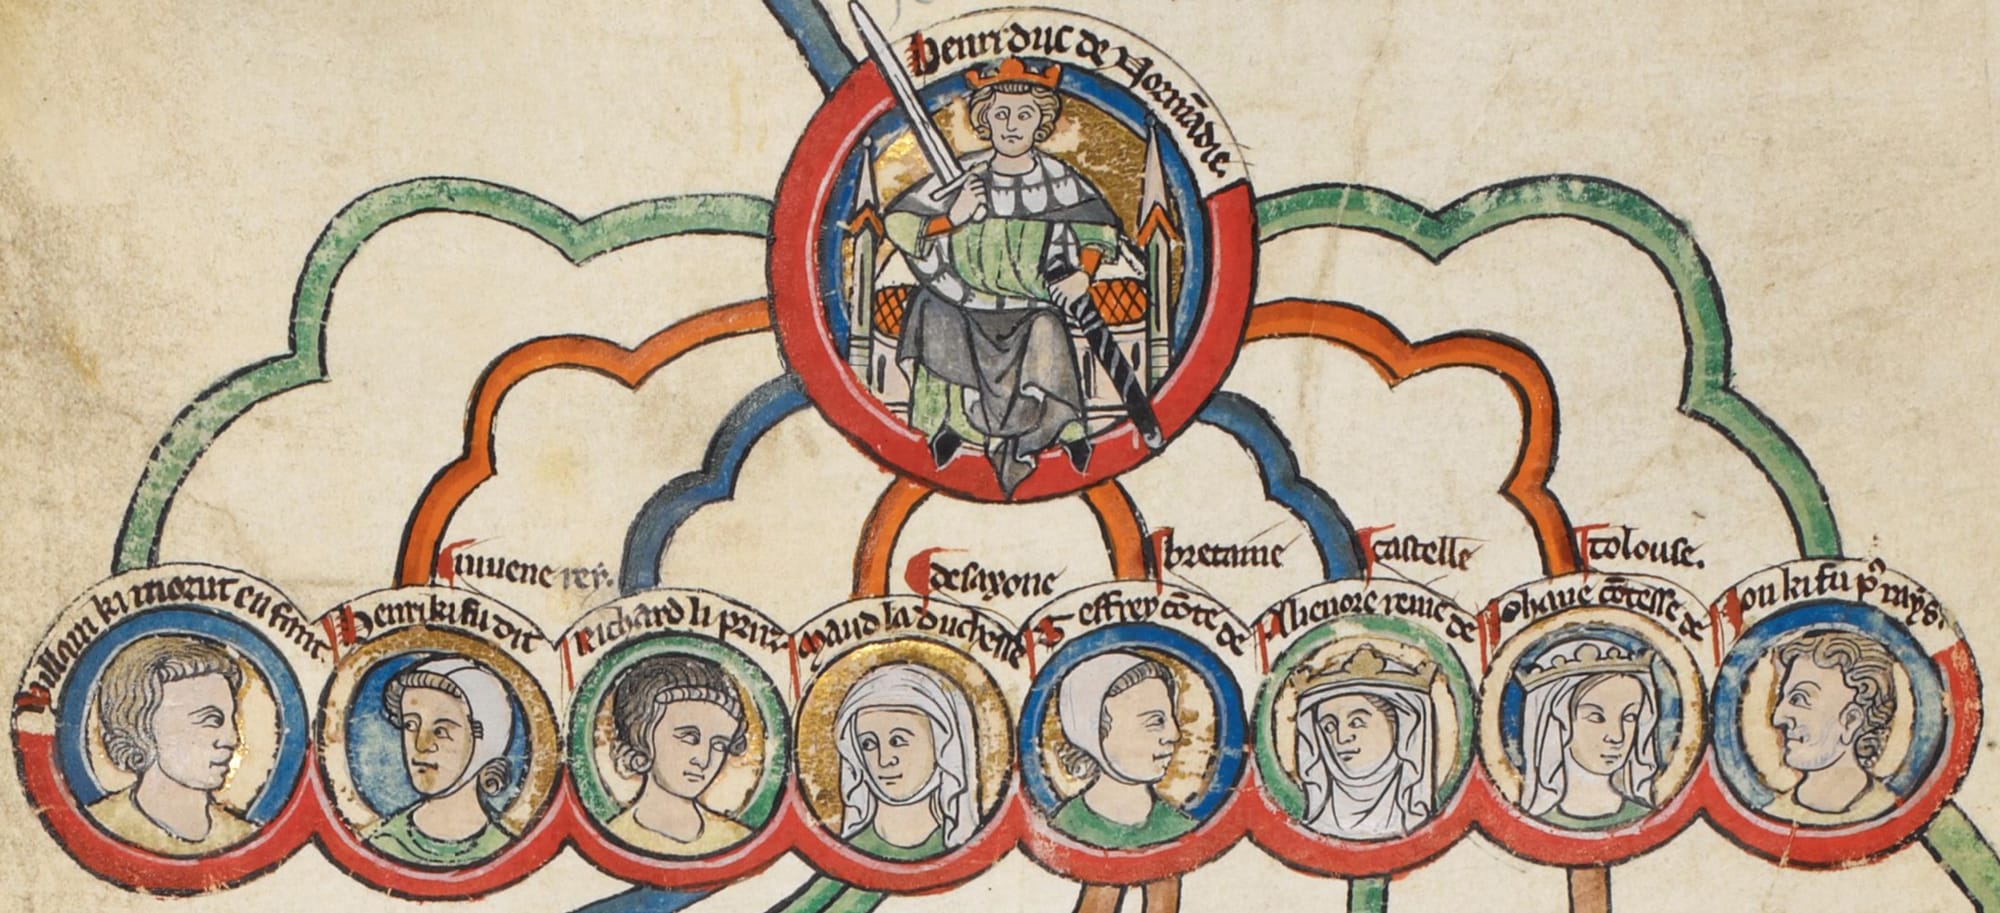 Henri duc de Normādie.
Willam ki morut enfant.
Henri ki fu dit
iuuene rey.
Richard li prinz
Maud la duchesse
de saxone
Geffrey cōte de
bretaine
Alienore reine de
castelle
Iohane cōtesse de
tolouse.
Ion ki fu pꝰ rays.